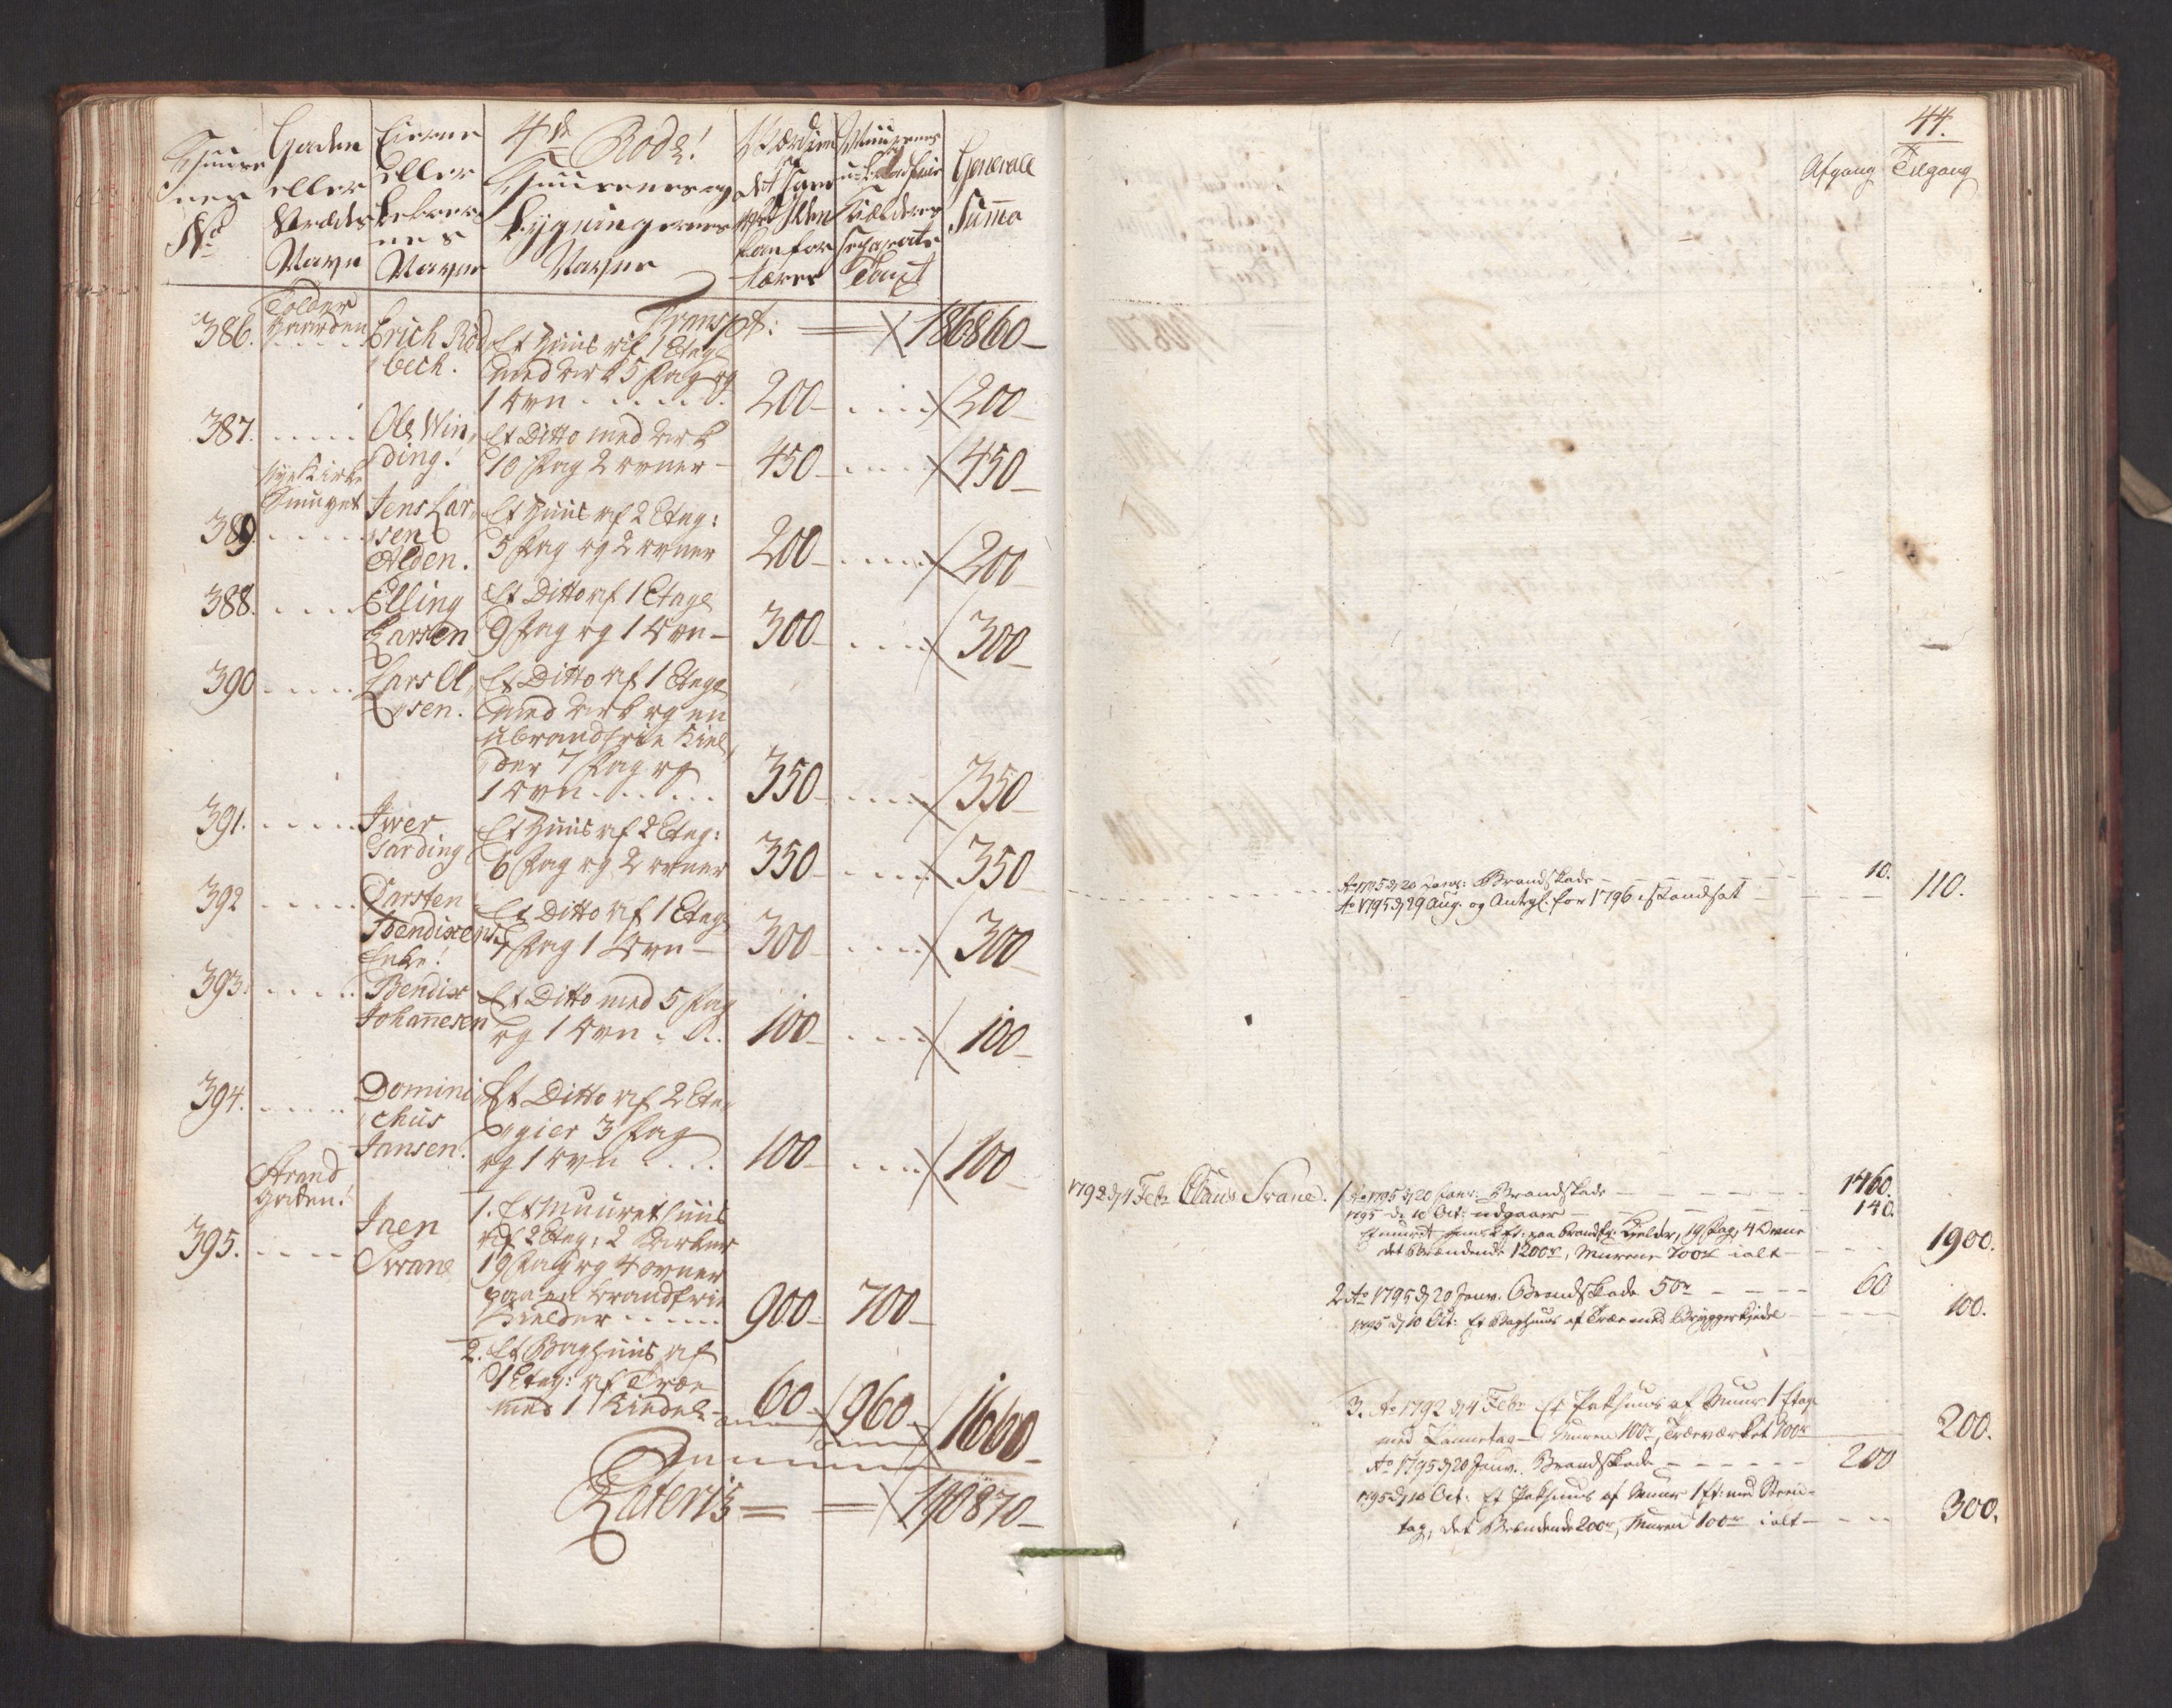 Huuse
nes
No
Gaden
eller
Strædes
Navn
Eierne
eller
Beboer
nes
Navne
4de Rode!
Huusenes og
Bygningernes
Navne
Værdien
det som
ved Ilden
kan for
tæres
Muurenes
og brandfrie
Kielderes
separate
Taxt
Generale
Summa
Transpt: 186860
386. Tolder
Gaarden Erich Rød
bech. Et Huus af 1 Etage
med Ark 5 Fag og
1 Ovn 200 200
387. Ole Win
ding! Et Ditto med Ark
10 Fag 2 ovner 450 450
Nyekirke
Smuget
389. Jens Lar
sen
Alden. Et Huus af 2 Etag:
5 Fag og 2 ovner 200 200
388. Elling
Larsen Et Ditto af 1 Etage
9 Fag og 1 Ovn 300 300
390 Lars Ol
sen. Et Ditto af 1 Etage
med Ark og en
ubrandfrie Kiel
der 7 Fag og
1 Ovn 350 350
391. Iwer
Garding Et Huus af 2 Etag:
6 Fag og 2 ovner 350 350
392 Carsten
Bendixens
Enke! Et Ditto af 1 Etage
7 Fag 1 Ovn 300 300
393. Bendix
Johannesen Et Ditto med 5 Fag
og 1 Ovn 100 100
394. Domini
chus
Jansen. Et Ditto af 2 Eta
gier 3 Fag
og 1 Ovn 100 100
Strand
Gaden!
395. Jaen
Svane 1. Et Muuret huus
af 2 Etag: 2 Arker
19 Fag og 4 ovner
paa en brandfrie
Kielder 900 700
2. Et Baghuus af
1 Etag: af Træe
med 1 Kiedel 60 960 1660
Summa
Lateris 190870
44.
Afgang Tilgang
Ao 1795 d 20 Janv: Brandskade 10.
Ao 1795 d 29 Aug. og Antegl. for 1796 istandsat 110.
1792 d 4 Febr Claus Svane. 1 Ao 1795 d 20 Janv: Brandskade 1460.
1795 d 10 Oct: udgaaer 140.
Et muuret huus 2 Et: paa brandfr: Kielder, 19 Fag, 4 Ovne
det Brændende 1200r, Murene 700r ialt 1900.
2 Ao 1795 d 20 Janv. Brandskade 50r 60
1795 d 10 Oct: Et Baghuus af Træe med Bryggerkiedel 100.
3. Ao 1792 d 4 Febr Et Pakhuus af Muur 1 Etag
med Pannetag Muren 100r, Træeværket 100r 200.
Ao 1795 d 20 Janv. Brandskade 200
1795 d 10 Oct: Et Pakhuus af Muur 1 Et: med Steen-
tag, det Brændende 200r, Muren 100r ialt 300.